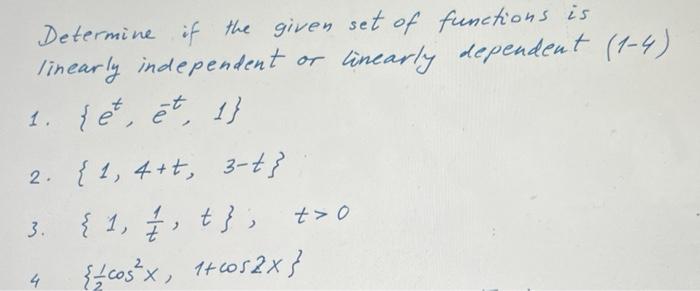 Determine if the given set of functions is
linearly independent or linearly dependent (1-4)
1. {e^t, e^-t, 1}
2. {1, 4+t, 3-t}
3. {1, 1/t, t}, t>0
4 {1/2 cos²x, 1+cos2x}